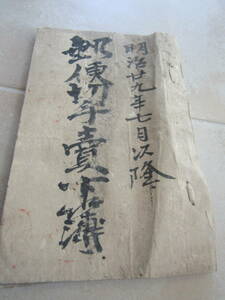 明治廿九年七月以降
郵便切手賣下簿